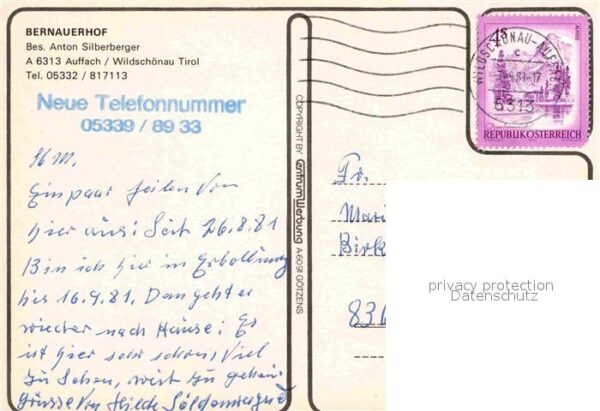 BERNAUERHOF
Bes. Anton Silberberger
A 6313 Auffach / Wildschönau Tirol
Tel. 05332 / 817113
Neue Telefonnummer
05339 / 89 33
Ein paar Zeilen von
hier aus: Seit 26.8.81
Bin ich hier in Erhollung
bis 16.9.81. Dan geht er
wiecher nach Hause: Es
ist hier sehr schön, Viel
zu Sehen, weit zu gehen
Grüsse Von Hilde
COPYRIGHT BY CentrumWerbung A-6091 GÖTZENS
WILDSCHÖNAU-AUFF
6313
REPUBLIK ÖSTERREICH
Fr.
Mari
Birk
836
privacy protection
Datenschutz